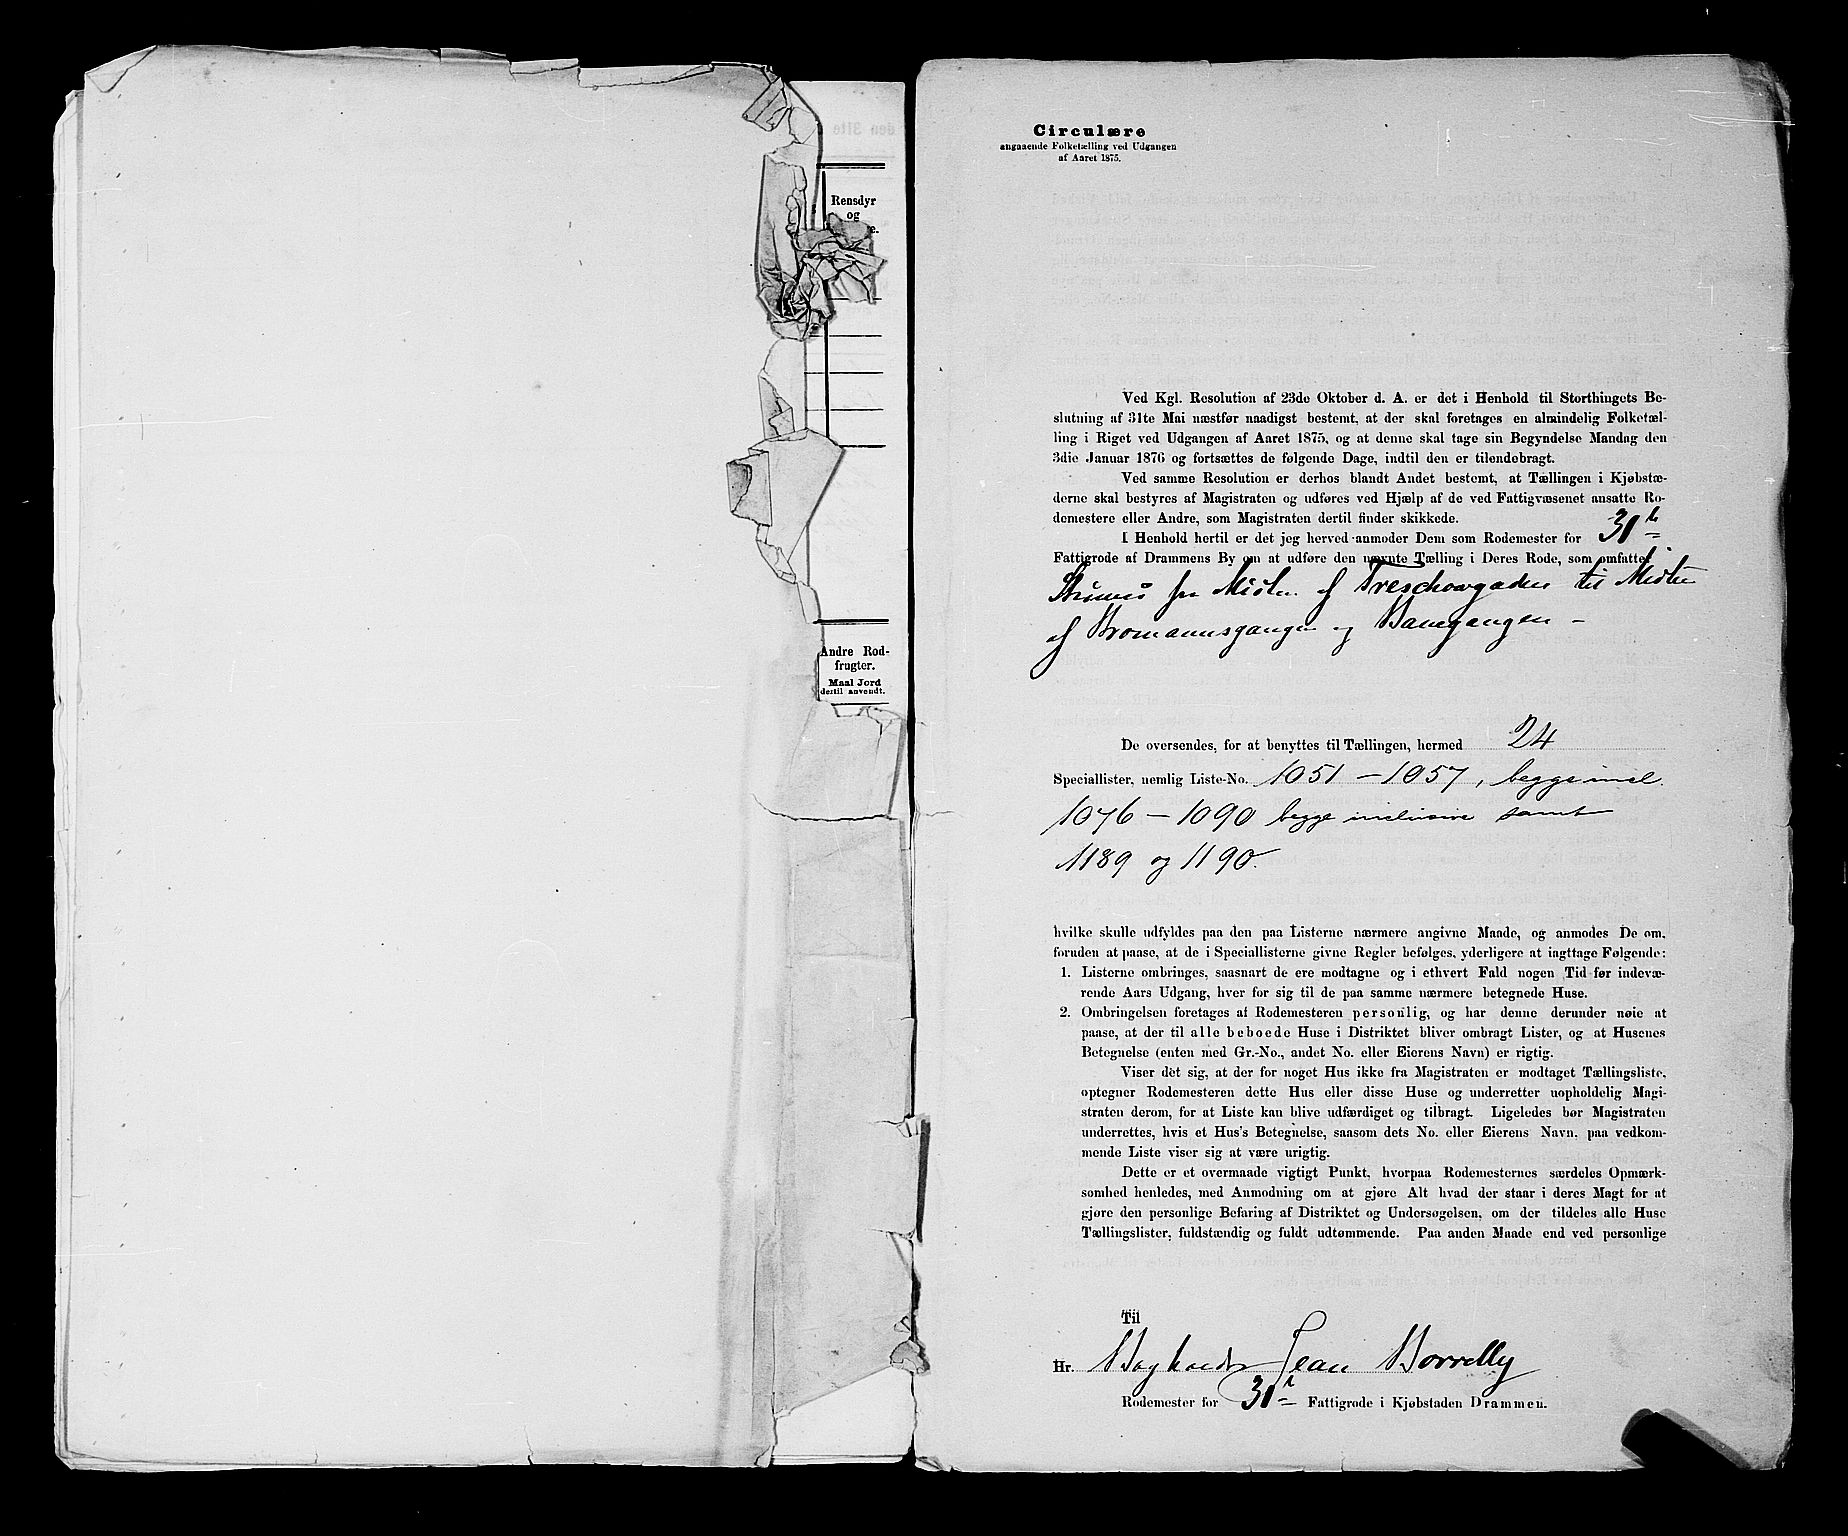 den 31te
Rensdyr
og
e.
Andre Rod-
frugter.
Maal Jord
dertil anvendt.
Circulære
angaaende Folketælling ved Udgangen
af Aaret 1875.
Ved Kgl. Resolution af 23de Oktober d. A. er det i Henhold til Storthingets Be-
slutning af 31te Mai næstfør naadigst bestemt, at der skal foretages en almindelig Folketæl-
ling i Riget ved Udgangen af Aaret 1875, og at denne skal tage sin Begyndelse Mandag den
3die Januar 1876 og fortsættes de følgende Dage, indtil den er tilendebragt.
Ved samme Resolution er derhos blandt Andet bestemt, at Tællingen i Kjøbstæ-
derne skal bestyres af Magistraten og udføres ved Hjælp af de ved Fattigvæsenet ansatte Ro-
demestere eller Andre, som Magistraten dertil finder skikkede.
I Henhold hertil er det jeg herved anmoder Dem som Rodemester for 31te
Fattigrode af Drammens By om at udføre den nævnte Tælling i Deres Rode, som omfatter
Strømsø fra Midten af Treschowgaden til Midten
af Bromannsgangen og Banegangen -
De oversendes, for at benyttes til Tællingen, hermed 24
Speciallister, nemlig Liste-No. 1051 - 1057, begge incl.
1076 - 1090 begge inclusive samt
1189 og 1190.
hvilke skulle udfyldes paa den paa Listerne nærmere angivne Maade, og anmodes De om,
foruden at paase, at de i Speciallisterne givne Regler befølges, yderligere at iagttage Følgende:
1. Listerne ombringes, saasnart de ere modtagne og i ethvert Fald nogen Tid før indevæ-
rende Aars Udgang, hver for sig til de paa samme nærmere betegnede Huse.
2. Ombringelsen foretages af Rodemesteren personlig, og har denne derunder nøie at
paase, at der til alle beboede Huse i Distriktet bliver ombragt Lister, og at Husenes
Betegnelse (enten med Gr.-No., andet No. eller Eierens Navn) er rigtig.
Viser det sig, at der for noget Hus ikke fra Magistraten er modtaget Tællingsliste,
optegner Rodemesteren dette Hus eller disse Huse og underretter uopholdelig Magi-
straten derom, for at Liste kan blive udfærdiget og tilbragt. Ligeledes bør Magistraten
underrettes, hvis et Hus's Betegnelse, saasom dets No. eller Eierens Navn, paa vedkom-
mende Liste viser sig at være urigtig.
Dette er et overmaade vigtigt Punkt, hvorpaa Rodemesternes særdeles Opmærk-
somhed henledes, med Anmodning om at gjøre Alt hvad der staar i deres Magt for at
gjøre den personlige Befaring af Distriktet og Undersøgelsen, om der tildeles alle Huse
Tællingslister, fuldstændig og fuldt udtømmende. Paa anden Maade end ved personlige
Til
Hr. Boghandler Jean Borrelly
Rodemester for 31te Fattigrode i Kjøbstaden Drammen.